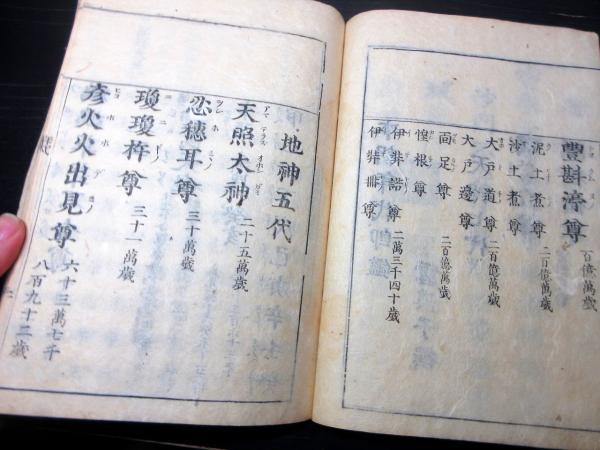 豊斟渟尊 百億萬歳
泥土煮尊
沙土煮尊 二百億萬歳
大戸道尊
大戸邊尊 二百億萬歳
面足尊
惶根尊 二百億萬歳
伊弉諾尊
伊弉冊尊 二萬三千四十歳
地神五代
天照太神 二十五萬歳
忍穂耳尊 三十萬歳
瓊瓊杵尊 三十一萬歳
彦火火出見尊 六十三萬七千八百九十二歳